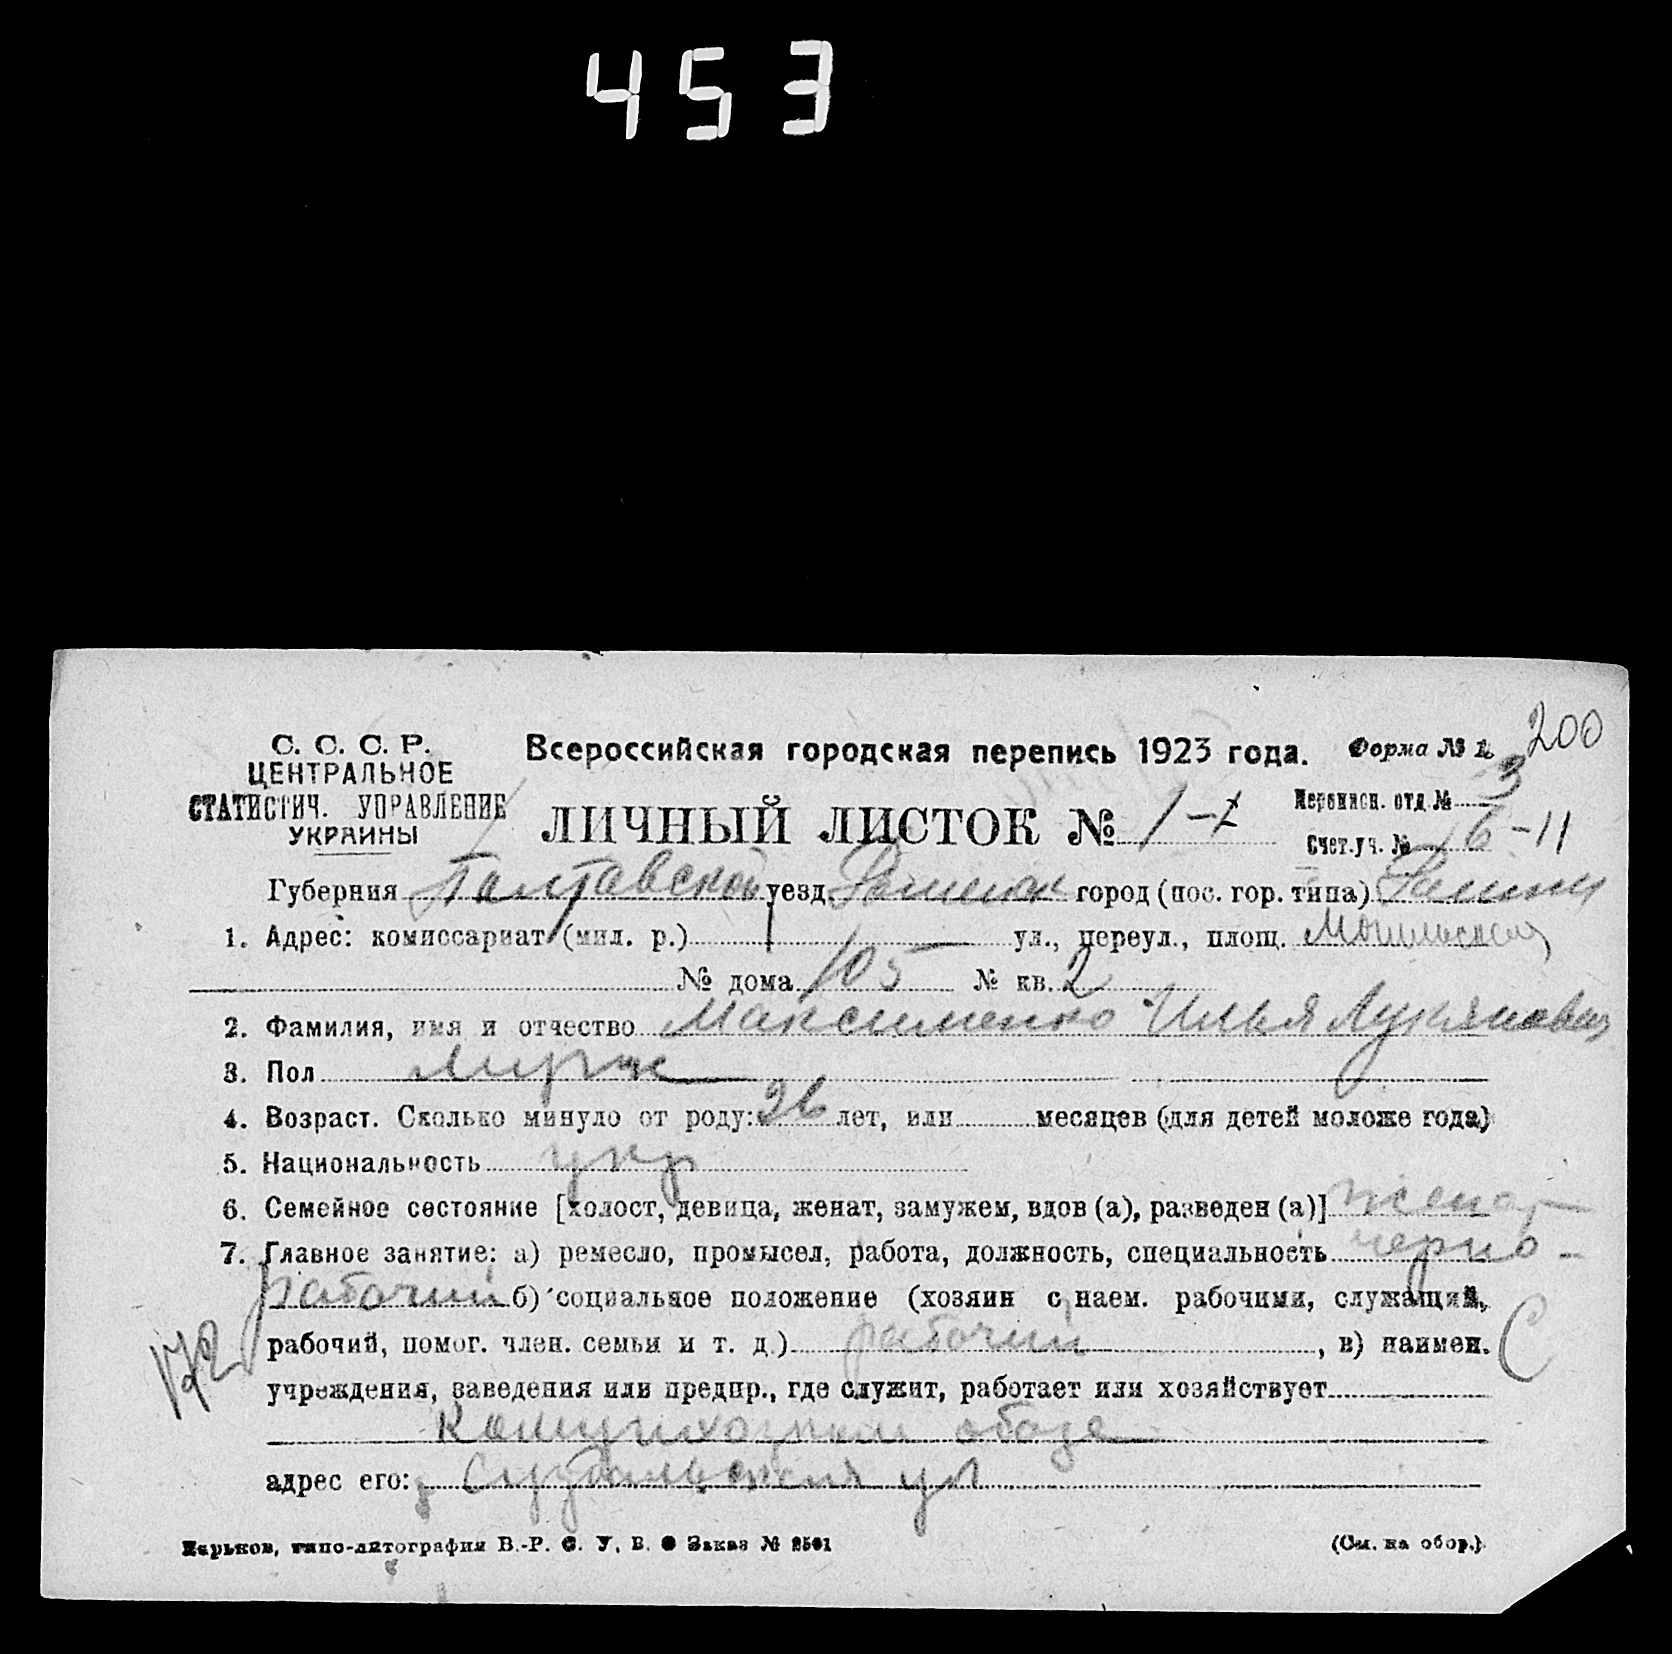 453
200
С. С. С. Р.
ЦЕНТРАЛЬНОЕ
СТАТИСТИЧ. УПРАВЛЕНИЕ
УКРАИНЫ
Всероссийская городская перепись 1923 года.
Форма № 1.
ЛИЧНЫЙ ЛИСТОК № 1-1
Переписн. отд. № 3
Счет. уч. № 6-11
Губерния Полтавской уезд. город (пос. гор. типа)
1. Адрес: комиссариат (мил. р.) 1 ул., переул., площ.
№ дома 105 № кв. 2
2. Фамилия, имя и отчество Максименко Илья Лукянович
3. Пол мужс
4. Возраст. Сколько минуло от роду: 26 лет, или месяцев (для детей моложе года)
5. Национальность укр
6. Семейное состояние [холост, девица, женат, замужем, вдов (а), разведен (а)] женат
7. Главное занятие: а) ремесло, промысел, работа, должность, специальность черно-
рабочий б) социальное положение (хозяин с наем. рабочими, служащий,
рабочий, помог. член. семьи и т. д.) рабочий, в) наимен. С
172
учреждения, заведения или предпр., где служит, работает или хозяйствует
обозе
адрес его: ул
Харьков, типо-литография В.-Р. С. У. В. О Заказ № 2501
(См. на обор.)